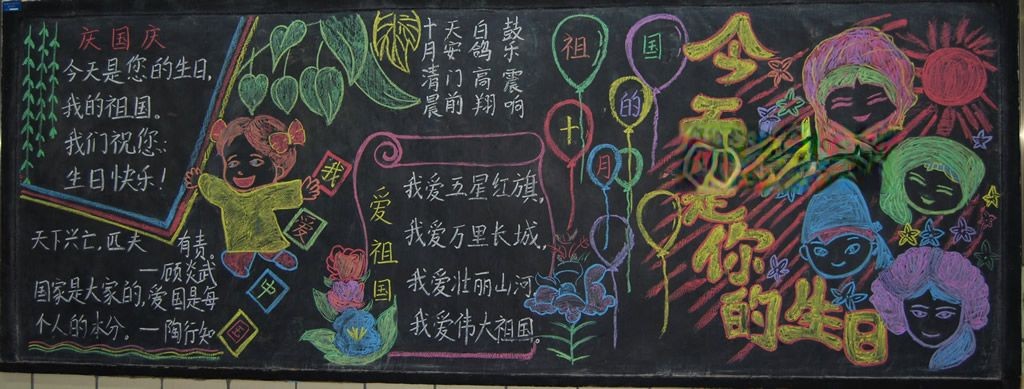 庆国庆
今天是您的生日,
我的祖国。
我们祝您:
生日快乐!
天下兴亡,匹夫 有责。
—顾炎武
国家是大家的,爱国是每
个人的本分。—陶行知
我
爱
中
国
十月清晨
天安门前
白鸽高翔
鼓乐震响
爱祖国
我爱五星红旗,
我爱万里长城,
我爱壮丽山河
我爱伟大祖国。
祖国
的
十
月
今
是
你
的生日